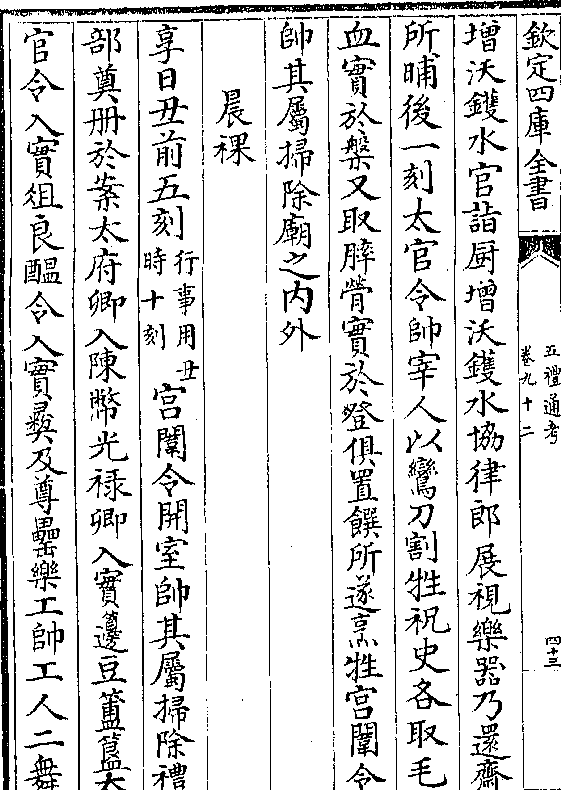 欽定四庫全書
五禮通考
卷九十二
四十三
增沃鑊水官詣厨增沃鑊水協律郎展視樂器乃還齋
所晡後一刻太官令帥宰人以鸞刀割牲祝史各取毛
血實於槃又取膟膋實於登俱置饌所遂烹牲宫闈令
帥其屬掃除廟之内外
晨祼
享日丑前五刻行事用丑時十刻宫闈令開室帥其屬掃除禮
部奠册於案太府卿入陳幣光禄卿入實籩豆簠簋太
官令入實俎良醖令入實彝及尊罍樂工帥工人二舞